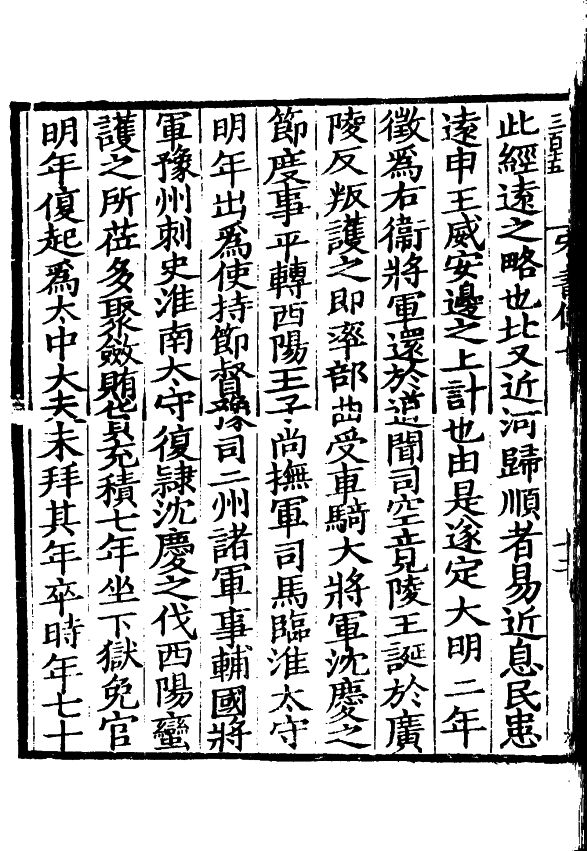 三百十五
此經遠之略也比又近河歸順者易近息民患
遠申王威安邊之上計也由是遂定大明二年
徵爲右衞將軍還於道聞司空竟陵王誕於廣
陵反叛護之即率部曲受車騎大將軍沈慶之
節度事平轉西陽王子尚撫軍司馬臨淮太守
明年出爲使持節督豫司二州諸軍事輔國將
軍豫州刺史淮南太守復隸沈慶之伐西陽蠻
護之所莅多聚斂賄貨充積七年坐下獄免官
明年復起爲太中大夫未拜其年卒時年七十